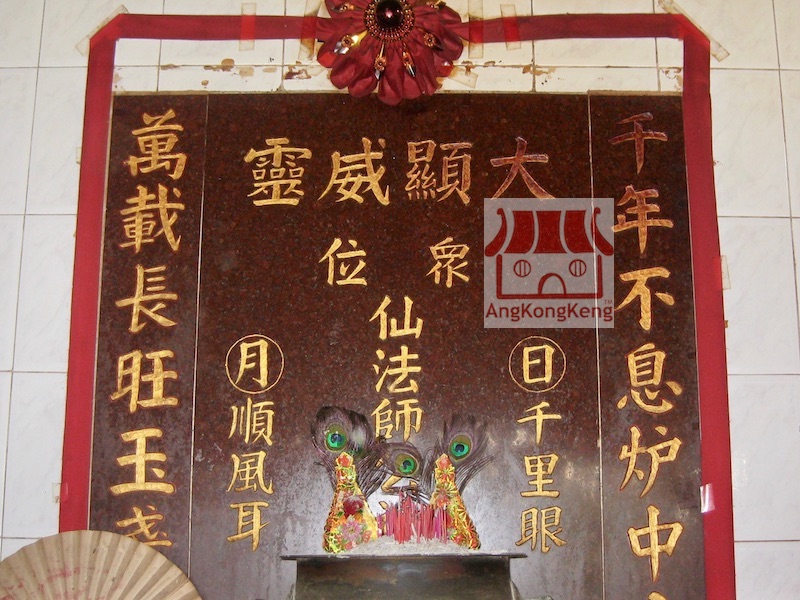 大顯威靈
眾位
仙法師
千年不息炉中
日千里眼
月順風耳
萬載長旺玉盏
AngKongKeng
TM